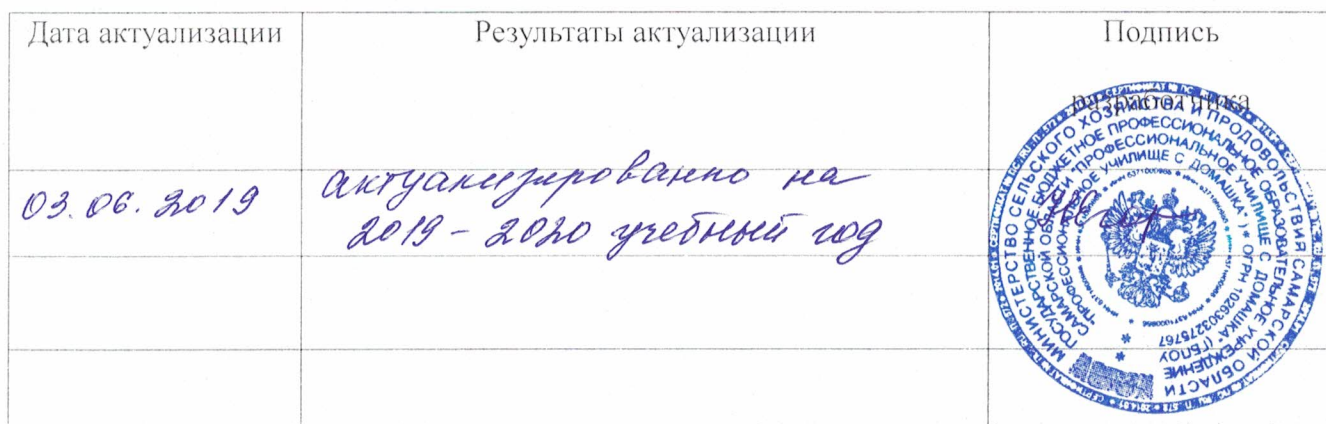 Дата актуализации
Результаты актуализации
Подпись
разработчика
03.06.2019
актуализированно на
2019 - 2020 учебный год
МИНИСТЕРСТВО СЕЛЬСКОГО ХОЗЯЙСТВА И ПРОДОВОЛЬСТВИЯ САМАРСКОЙ ОБЛАСТИ
ГОСУДАРСТВЕННОЕ БЮДЖЕТНОЕ ПРОФЕССИОНАЛЬНОЕ ОБРАЗОВАТЕЛЬНОЕ УЧРЕЖДЕНИЕ
САМАРСКОЙ ОБЛАСТИ "ПРОФЕССИОНАЛЬНОЕ УЧИЛИЩЕ С ДОМАШКА" (ГБПОУ
"ПРОФЕССИОНАЛЬНОЕ УЧИЛИЩЕ С ДОМАШКА") * ОГРН 1026303275767